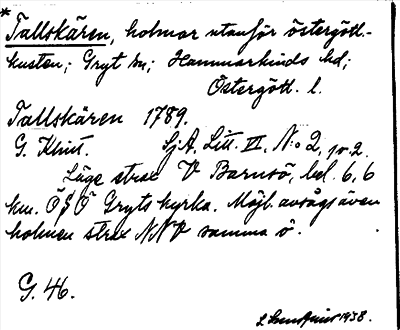 * Tallskären, holmar utanför östergötl.-
kusten; Gryt sn; Hammarkinds hd;
Östergötl. l.
Tallskären 1789.
G. Klint. Sj.A. Litt. II, No 2, nr 2.
Läge strax V Barnsö, bel. 6,6
km. ÖSÖ Gryts kyrka. Möjl. avsågs även
holmen strax NNV samma ö.
G. 46.
1938.